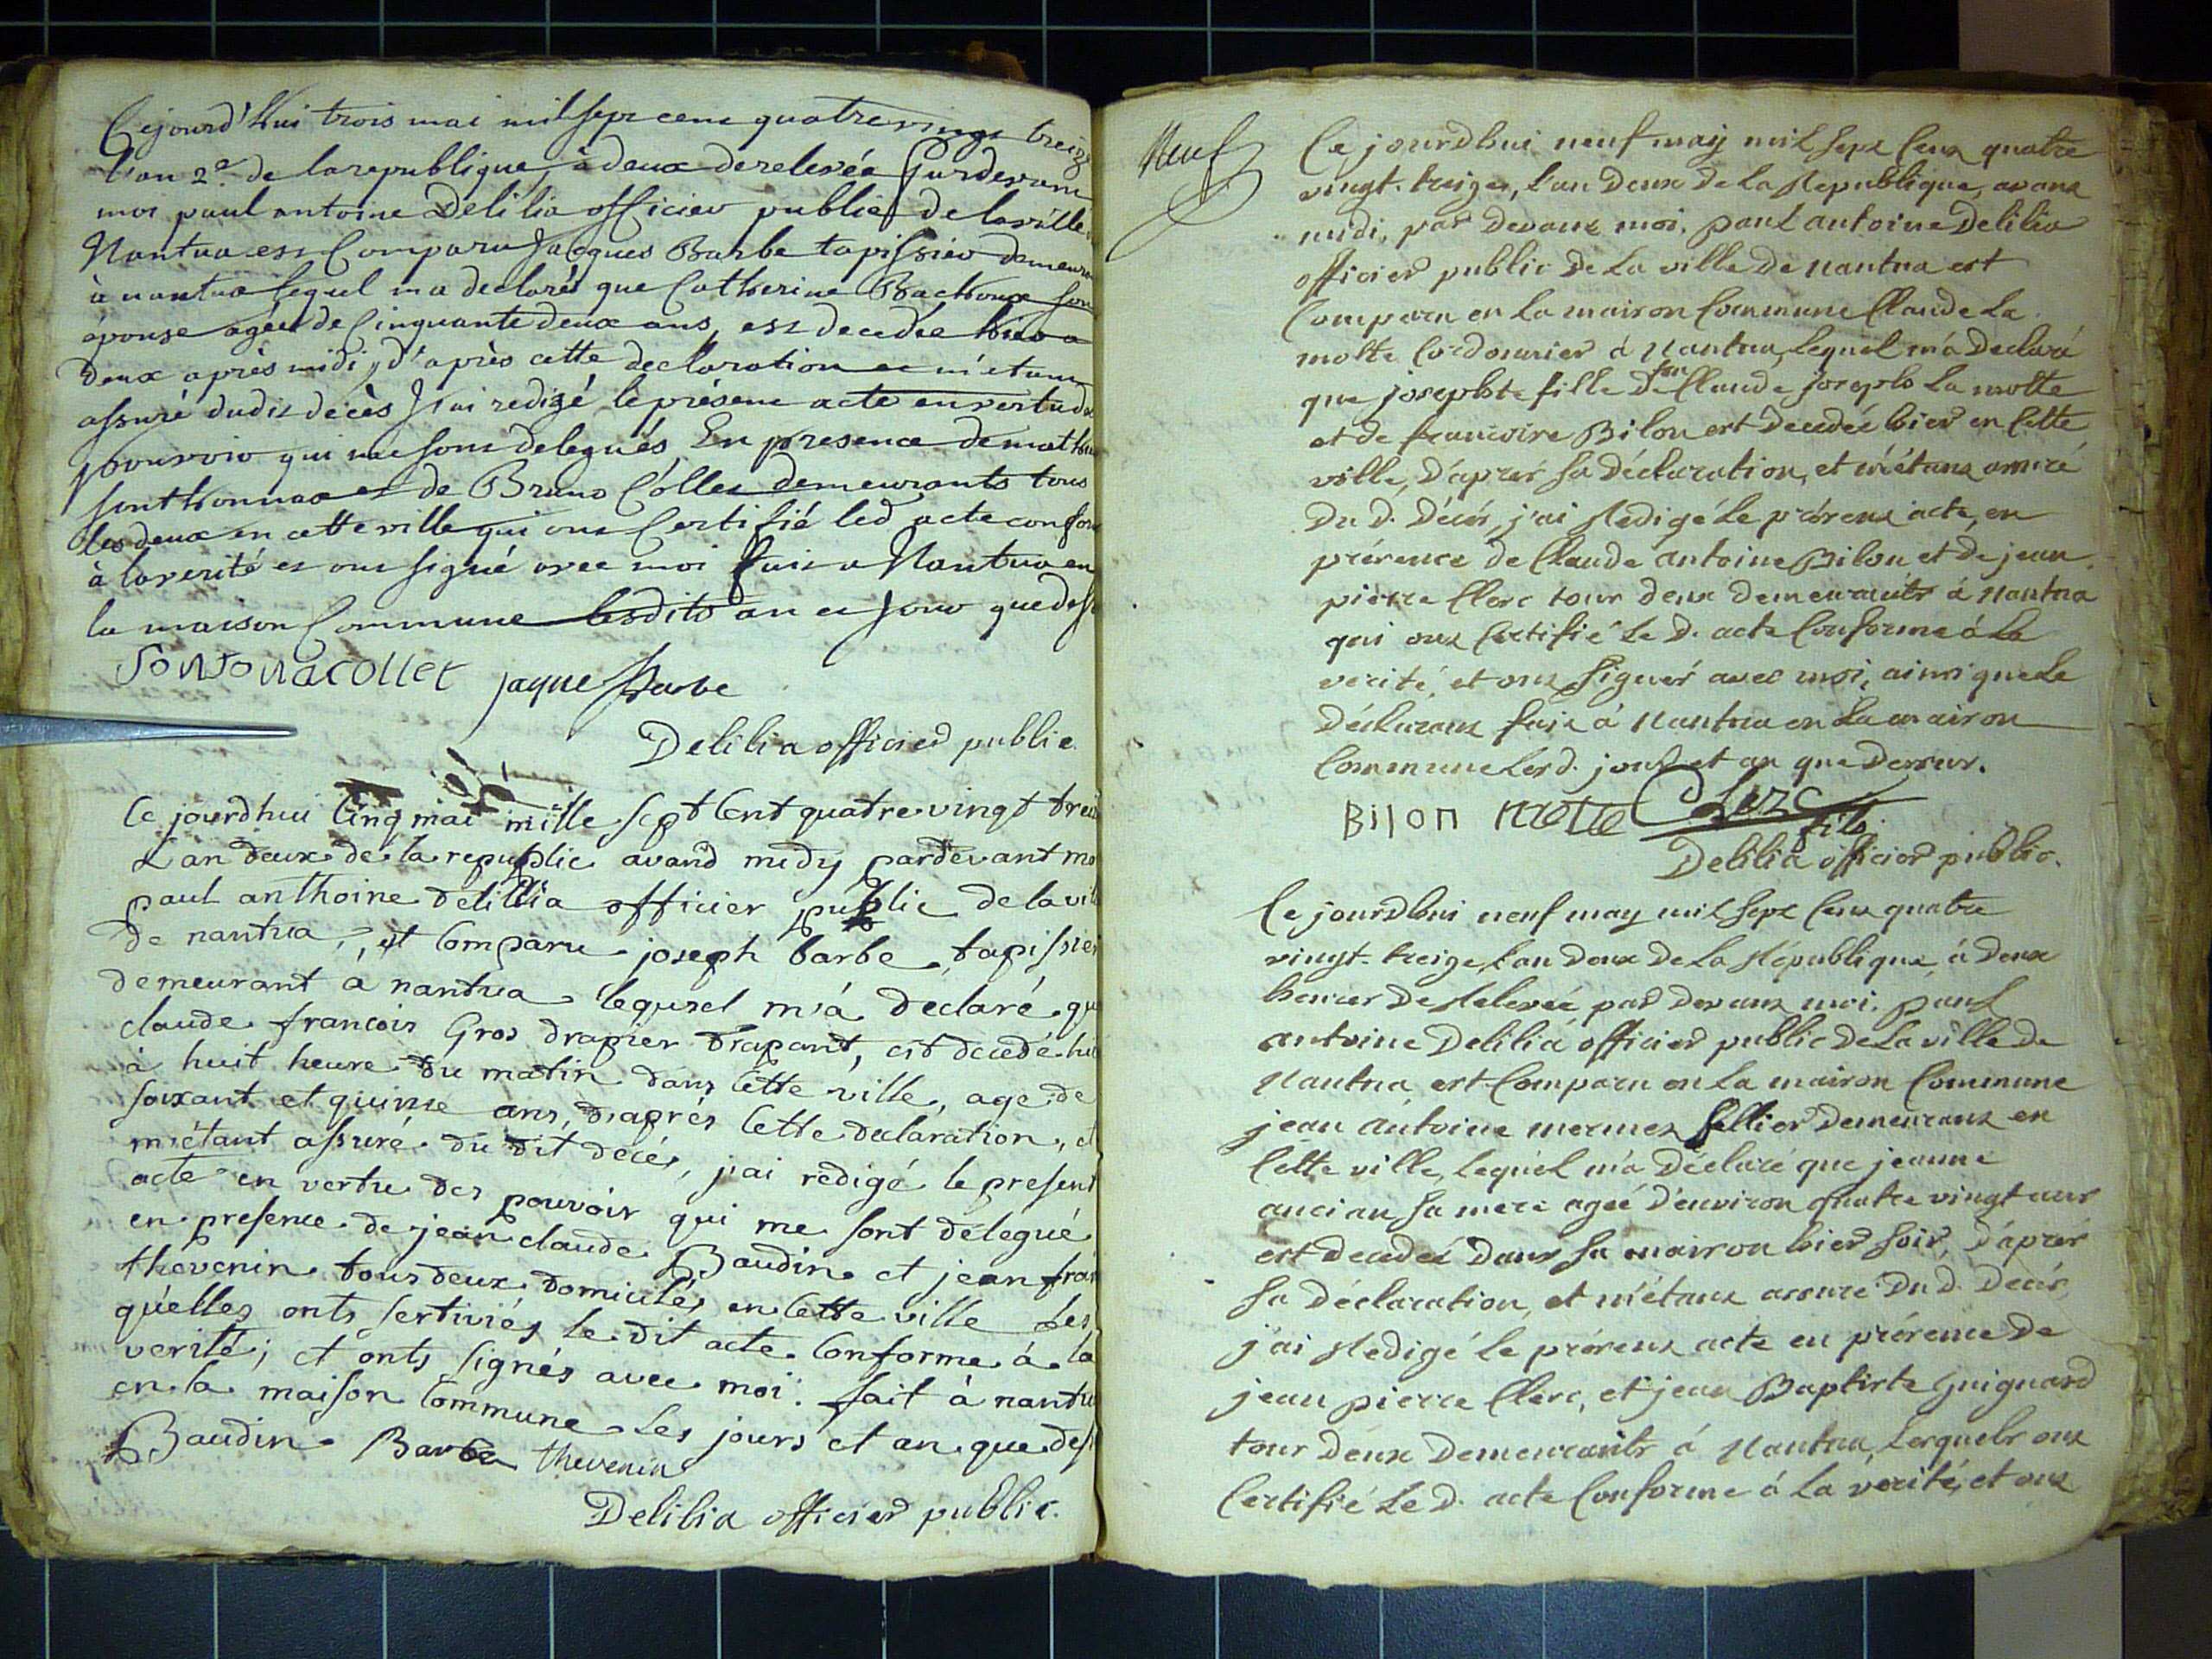 Cejourd'hui trois mai mil sept cent quatrevingt treize
l'an 2e. de la republique, à deux de relevée Pardevant
moi paul antoine Delilia officier public de la ville
Nantua est Comparu Jacques Barbe tapissier demeurant
à nantua lequel m'a declarés que Catherine Rachoux son
épouse agée de Cinquante deux ans, est decedée hier a
deux après midi, d'après cette declaration et m'étant
assuré dudit decès J'ai redigé le présent acte en vertu des
pouvoir qui me sont delegués, En presence de mathieu
Sonthonnax et de Bruno Collet demeurants tous
les deux en cette ville qui ont Certifié led acte conforme
à la verité et ont signé avec moi fait a Nantua en
la maison Commune lesdits an et Jour que dess
Sontonacollet jaque Barbe
Delilia officier public.
Ce jourdhui Cinq mai mille sept Cent quatre vingt treize
L'an deux de la republic avand midy pardevant moi
paul anthoine delillia officier public de la ville
de nantua, est Comparu joseph barbe tapissier
demeurant à nantua lequel m'à declaré que
claude francois Gros drapier drapant, est decedé hier
à huit heure du matin dans Cette ville, age de
soixant et quinse ans, d'aprés Cette declaration, et
m'étant assuré du dit décés, j'ai redigé le present
acte en vertu des pouvoir qui me sont délegué
en presence de jean claude Baudin et jean fran
thevenin tous deux domiciles en Cette ville Les
quelles onts sertiviés le dit acte Conforme à la
verité; et onts signés avec moi. fait à nantua
en la maison Commune Les jours et an que dess
Baudin Barbe thevenin
Delilia officier public.
Neuf
Ce jourdhui neuf may mil sept Cent quatre
vingt-treize, L'an Deux de La Republique, avant
midi, par devant moi. paul antoine Delilia
officier public de La ville de nantua est
Comparu en La maison Commune Claude La
motte Cordonnier à Nantua, Lequel m'a Declaré
que josephte fille de feu Claude joseph La motte
et de francoise Bilon est Decedée hier en Cette
ville, D'après sa Déclaration, et m'étant assuré
Du D. Décés, j'ai Redigé Le présent acte, en
présence de Claude antoine Bilon et de jean
pierre Clerc tous deux demeurants à Nantua
qui ont Certifié Le D. acte Conforme à La
verité, et ont Signés avec moi, ainsi que Le
Déclarant fait à Nantua en La maison
Commune Les d. jour et an que Dessus.
Bilon motte Clerc fils
Delilia officier public.
Ce jourdhui neuf may mil sept Cent quatre
vingt-treize L'an Deux De La République, à Deux
heures de Relevée par devant moi. paul
antoine Delilia officier public De La ville De
Nantua, est Comparu en La maison Commune
jean antoine mermet Sellier Demeurant en
Cette ville, Lequel m'a Déclaré que jeanne
ancian sa mere agée d'environ quatre vingt ans
est decedée Dans sa maison hier soir, D'après
Sa Déclaration, et m'étant assuré Du D. Décés,
j'ai Redigé Le présent acte en présence De
jean pierre Clerc, et jean Baptiste Guignard
tous Deux Demeurants à Nantua, Lesquels ont
Certifié Le D. acte Conforme à La verité, et ont